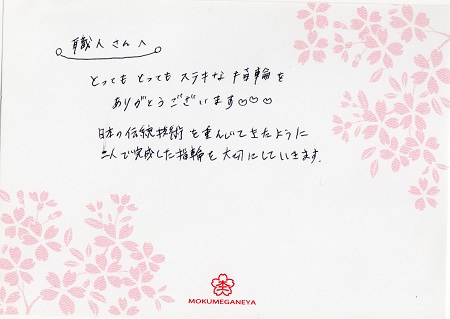 職人さんへ
とっても とっても ステキな 指輪を
ありがとうございます♡♡♡
日本の伝統技術を重んじてきたように
二人で完成した指輪を大切にしていきます。
MOKUMEGANEYA